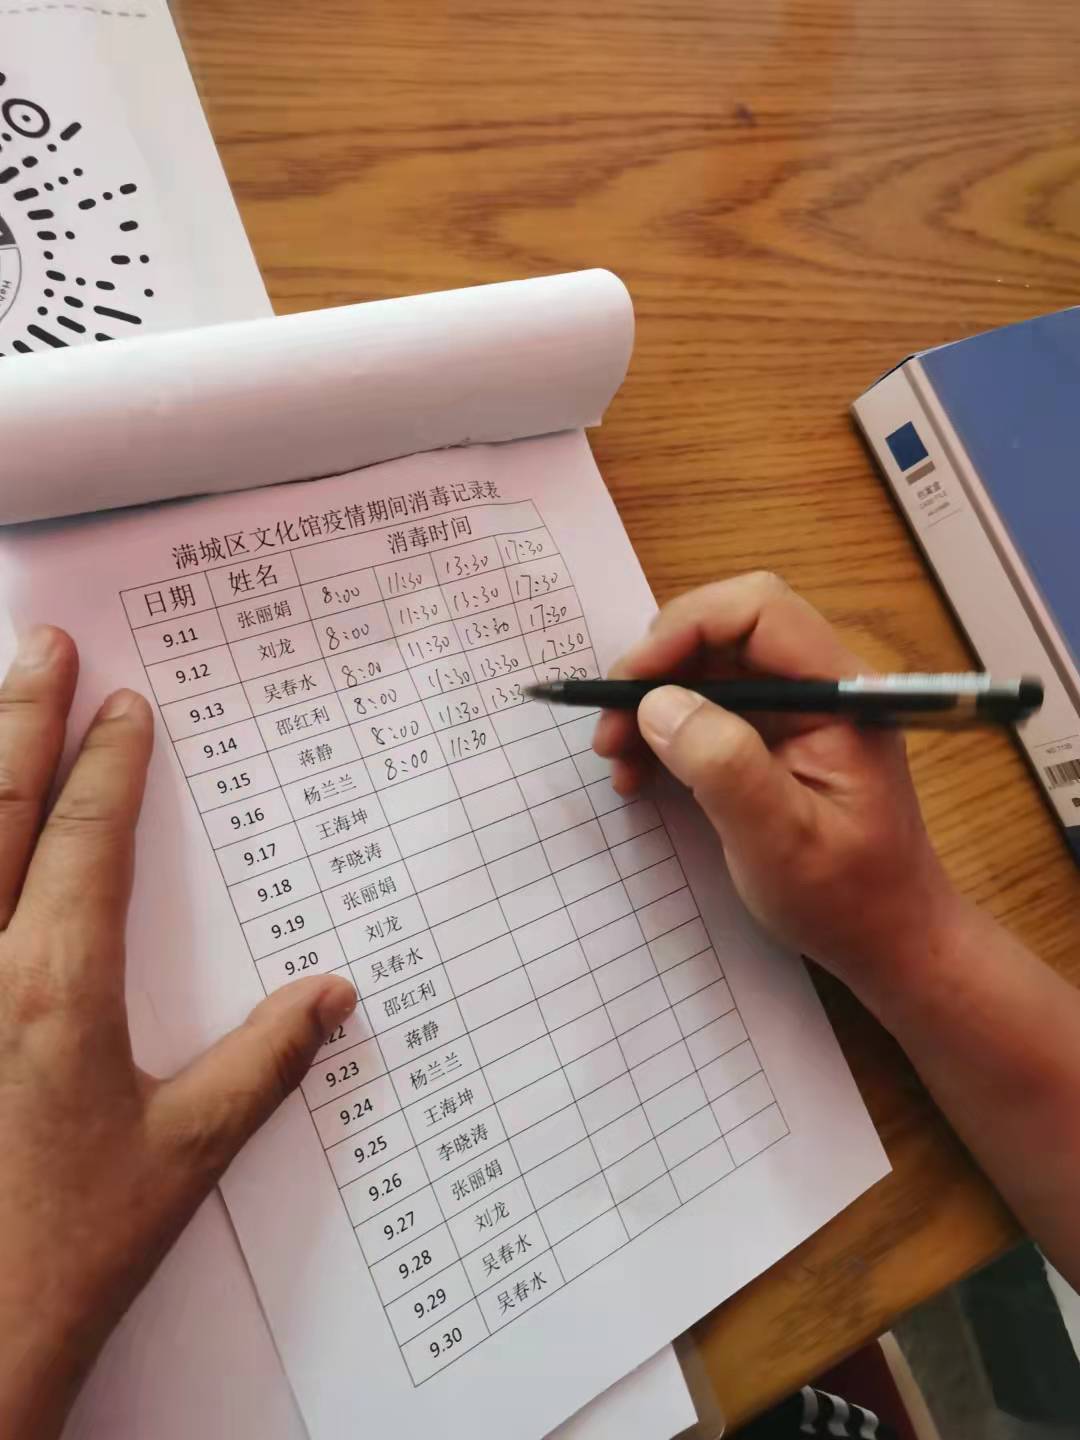 满城区文化馆疫情期间消毒记录表
日期 姓名 消毒时间
9.11 张丽娟 8:00 11:30 13:30 17:30
9.12 刘龙 8:00 11:30 13:30 17:30
9.13 吴春水 8:00 11:30 13:30 17:30
9.14 邵红利 8:00 11:30 13:30 17:30
9.15 蒋静 8:00 11:30 13:30 17:30
9.16 杨兰兰 8:00 11:30
9.17 王海坤
9.18 李晓涛
9.19 张丽娟
9.20 刘龙
吴春水
22 邵红利
9.23 蒋静
9.24 杨兰兰
9.25 王海坤
9.26 李晓涛
9.27 张丽娟
9.28 刘龙
9.29 吴春水
9.30 吴春水
档案盒